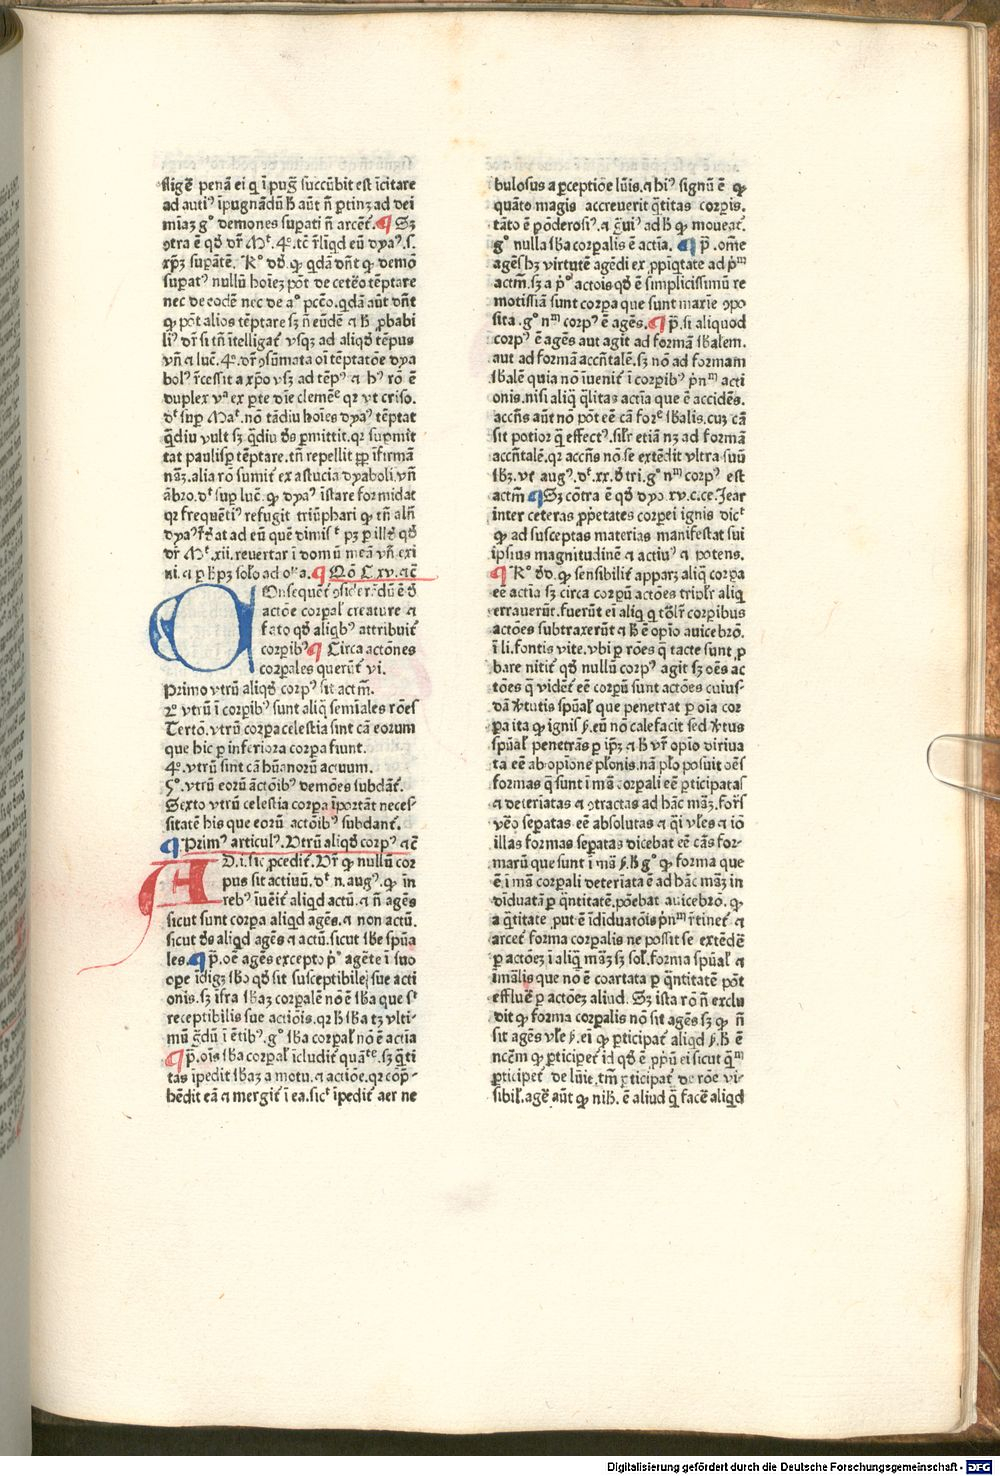 fligē penā ei q̄ ī pug̅ succūbit est īcitare
ad auti⁹ īpugnādū h̄ aūt n̄ ꝑtinꝫ ad dei
miaꝫ g° demones suꝑati n̄ arcēt᷑. ¶ Sꝫ
ꝯtra ē qḋ dr̄ Mᵗ. 4°. tē r̄liqd eū dya⁹. s.
xp̄ꝫ suꝑātē. R° dḋ. ꝙ qdā dn̄t ꝙ demō
suꝑat⁹ nullū hoīeꝫ pōt de cetēo tēptare
nec de eodē nec de a° pcc̄o. qdā aūt dn̄t
ꝙ pōt alios tēptare sꝫ n̄ eūdē ⁊ h̄ ꝓbabi
li⁹ dr̄ si tn̄ ītelligat᷑ vsqꝫ ad aliqḋ tēpus
vn̄ ⁊ luc̄. 4°. dr̄ ꝯsūmata oī tēptatōe dya
bol⁹ r̄cessit a xp̄o vsꝫ ad tēp⁹ ⁊ h⁹ rō ē
duplex vᵃ ex ꝑte die clemēᵉ qꝛ vt criso.
dᵗ suꝑ Maᵗ. nō tādiu hoīes dya⁹ tēptat
q̄diu vult sꝫ q̄diu ḋs ꝑmittit. qꝛ suꝑmit
tat paulisꝑ tēptare. tn̄ repellit ꝓꝑ īfirmā
nāꝫ. alia rō sumit᷑ ex astucia dyaboli. vn̄
ābro. dᵗ suꝑ luc̄. ꝙ dya⁹ īstare formidat
qꝛ frequēti⁹ refugit triūphari ꝙ tn̄ aln̄
dya⁹ r̄ūtat ad eū quē dimisᵗ pꝫ ꝑ illḋ qḋ
dr̄ Mᵗ. xii. revertar ī domū meā vn̄ exi
ni. ⁊ ꝑ h̄ pꝫ soło ad oᵃa. ¶ Qō C. xv. ⁊c̄
COnsequēt᷑ ꝯsiderādū ē ḋ
actōe corꝑal᷑ creature ⁊
fato qḋ aliqb⁹ attribuit᷑
corꝑib⁹ ¶ Circa actōnes
corꝑales querūt᷑ vi.
Primo vtrū aliqḋ corp⁹ sit actīn̄.
2° vtrū ī corꝑib⁹ sunt aliq̄ semīales rōes
Tertō. vtrū corꝑa celestia sint cā eorum
que hic ꝑ inferiora corꝑa fiunt.
4°. vtrū sint cā hūanorū actuum.
5°. vtrū eorū actōib⁹ demōes subdāt᷑.
Sexto vtrū celestia corꝑa īportāt neces⸗
sitatē his que eorū actōib⁹ subdant᷑.
¶ Prim⁹ articul⁹. Utrū aliqḋ corp⁹ ⁊c̄
AD. i. sic ꝓcedit᷑. Ur̄ ꝙ nullū cor
pus sit actiuū. dᵗ n. aug⁹. ꝙ in
reb⁹ īuēit᷑ aliqd actū. ⁊ n̄ agēs
sicut sunt corꝑa aliqd agēs. ⁊ non actū.
sicut ḋs aliqd agēs ⁊ actū. sicut sbē spūa
les. ¶ p̄. oē agēs excepto p̄° agēte ī suo
oꝑe īdigꝫ sbō qḋ sit susceptibile sue acti
onis. sꝫ īfra sbaꝫ corꝑalē nō ē sba que sᵗ
receptibilis sue actiōis. qꝛ h̄ sba tꝫ vlti⸗
mū g̅dū ī ētib⁹. g° sba corꝑal᷑ nō ē actīa
¶ p̄. oīs sba corꝑal᷑ īcludit᷑ quātᵉ. sꝫ q̄ti
tas īpedit sbaꝫ a motu. ⁊ actiōe. qꝛ cōp̄⸗
hēdit eā ⁊ mergit᷑ ī ea. sicᵗ īpedit᷑ aer ne
bulosus a ꝑceptiōe lūis. ⁊ hi⁹ signū ē ꝙ
quāto magis accreuerit q̄titas corꝑis.
tāto ē pōderosi⁹. ⁊ g̅ui⁹ ad h̄ ꝙ moueat᷑.
g° nulla sba corꝑalis ē actīa. ¶ p̄. omē
agēs hꝫ virtutē agēdi ex ꝓpīqtate ad p̄mᵐ
actīn̄. sꝫ a p̄° actōis qḋ ē simplicissimū re
motissīa sunt corꝑa que sunt maxīe ꝯpo
sita. g° nᵐ corp⁹ ē agēs. ¶ p̄. si aliquod
corp⁹ ē agēs aut agit ad formā sbalem.
aut ad formā accn̄talē. sꝫ nō ad formam
sbalē quia nō īuenit᷑ ī corꝑib⁹ p̄nᵐ acti
onis. nisi aliq̄ q̄litas actīa que ē accidēs.
accn̄s aūt nō pōt eē cā forᵉ sbalis. cuꝫ cā
sit potior q̄ effect⁹. sil᷑r etiā nꝫ ad formā
accn̄talē. qꝛ accn̄s nō se extēdit vltra suū
sbꝫ. vt aug⁹. dᵗ. xx. ḋ tri. g° nᵐ corp⁹ est
actīn̄ ¶ Sꝫ cōtra ē qḋ dyo. xv. c. ce. Jear
inter ceteras ꝓp̄etates corꝑei ignis dicᵗ
ꝙ ad susceptas materias manifestat sui
ipsius magnitudinē ⁊ actiu⁹ ⁊ potens.
¶ R° ḋd. ꝙ sensibilit᷑ apparꝫ aliq̄ corꝑa
eē actīa sꝫ circa corꝑū actōes tripl᷑r aliq̄
errauerūt. fuerūt eī aliq̄ q tōl᷑r corꝑibus
actōes subtraxerūt ⁊ h̄ ē opīo auicebrō.
ī li. fontis vite. vbi ꝑ rōes q̄ tacte sunt ꝓ
bare nitit᷑ qḋ nullū corp⁹ agit sꝫ oēs ac
tōes q̄ vidēt᷑ eē corꝑū sunt actōes cuius⸗
dā v̄tutis spūal᷑ que penetrat ꝑ oīa cor
ꝑa ita ꝙ ignis ẜ. eū nō calefacit sed v̄tus
spūal᷑ penetrās ꝑ ip̄ꝫ ⁊ h̄ vr̄ opīo diriua
ta eē ab opīone plōnis. nā plo posuit oēs
formas q̄ sunt ī mā corꝑali eē ꝑticipatas
⁊ deteriatas ⁊ ꝯtractas ad hāc māꝫ. for̄s
vēo seꝑatas eē absolutas ⁊ q̄i vłes ⁊ iō
illas formas seꝑatas dicebat eē cās for⸗
marū que sunt ī mā ẜ. h̄ g° ꝙ forma que
ē ī mā corꝑali deterīata ē ad hāc māꝫ in
dīduatā ꝑ q̄ntitatē. pōebat auicebrō. ꝙ
a q̄titate ꝓut ē īdīduatōis p̄nᵐ r̄tinet᷑ ⁊
arcet᷑ forma corꝑalis ne possit se extēdē
ꝑ actōeꝫ ī aliq̄ māꝫ sꝫ sol᷑. forma spūal᷑ ⁊
īmālis que nō ē coartata ꝑ q̄ntitatē pōt
effluē ꝑ actōeꝫ aliud. Sꝫ ista rō n̄ exclu
dit ꝙ forma corꝑalis nō sit agēs sꝫ ꝙ n̄
sit agēs vłe ẜ. eī ꝙ ꝑticipat᷑ aliqd ẜ. h̄ ē
ncēm ꝙ ꝑticipet᷑ id qḋ ē ꝓpū ei sicut q̄ᵐ
ꝑticipet᷑ de lūīe. tm̄ ꝑticipat᷑ de rōe vi⸗
sibil᷑. agē aūt ꝙ nih̄. ē aliud q̄ facē aliqd
Digitalisierung gefördert durch die Deutsche Forschungsgemeinschaft - DFG